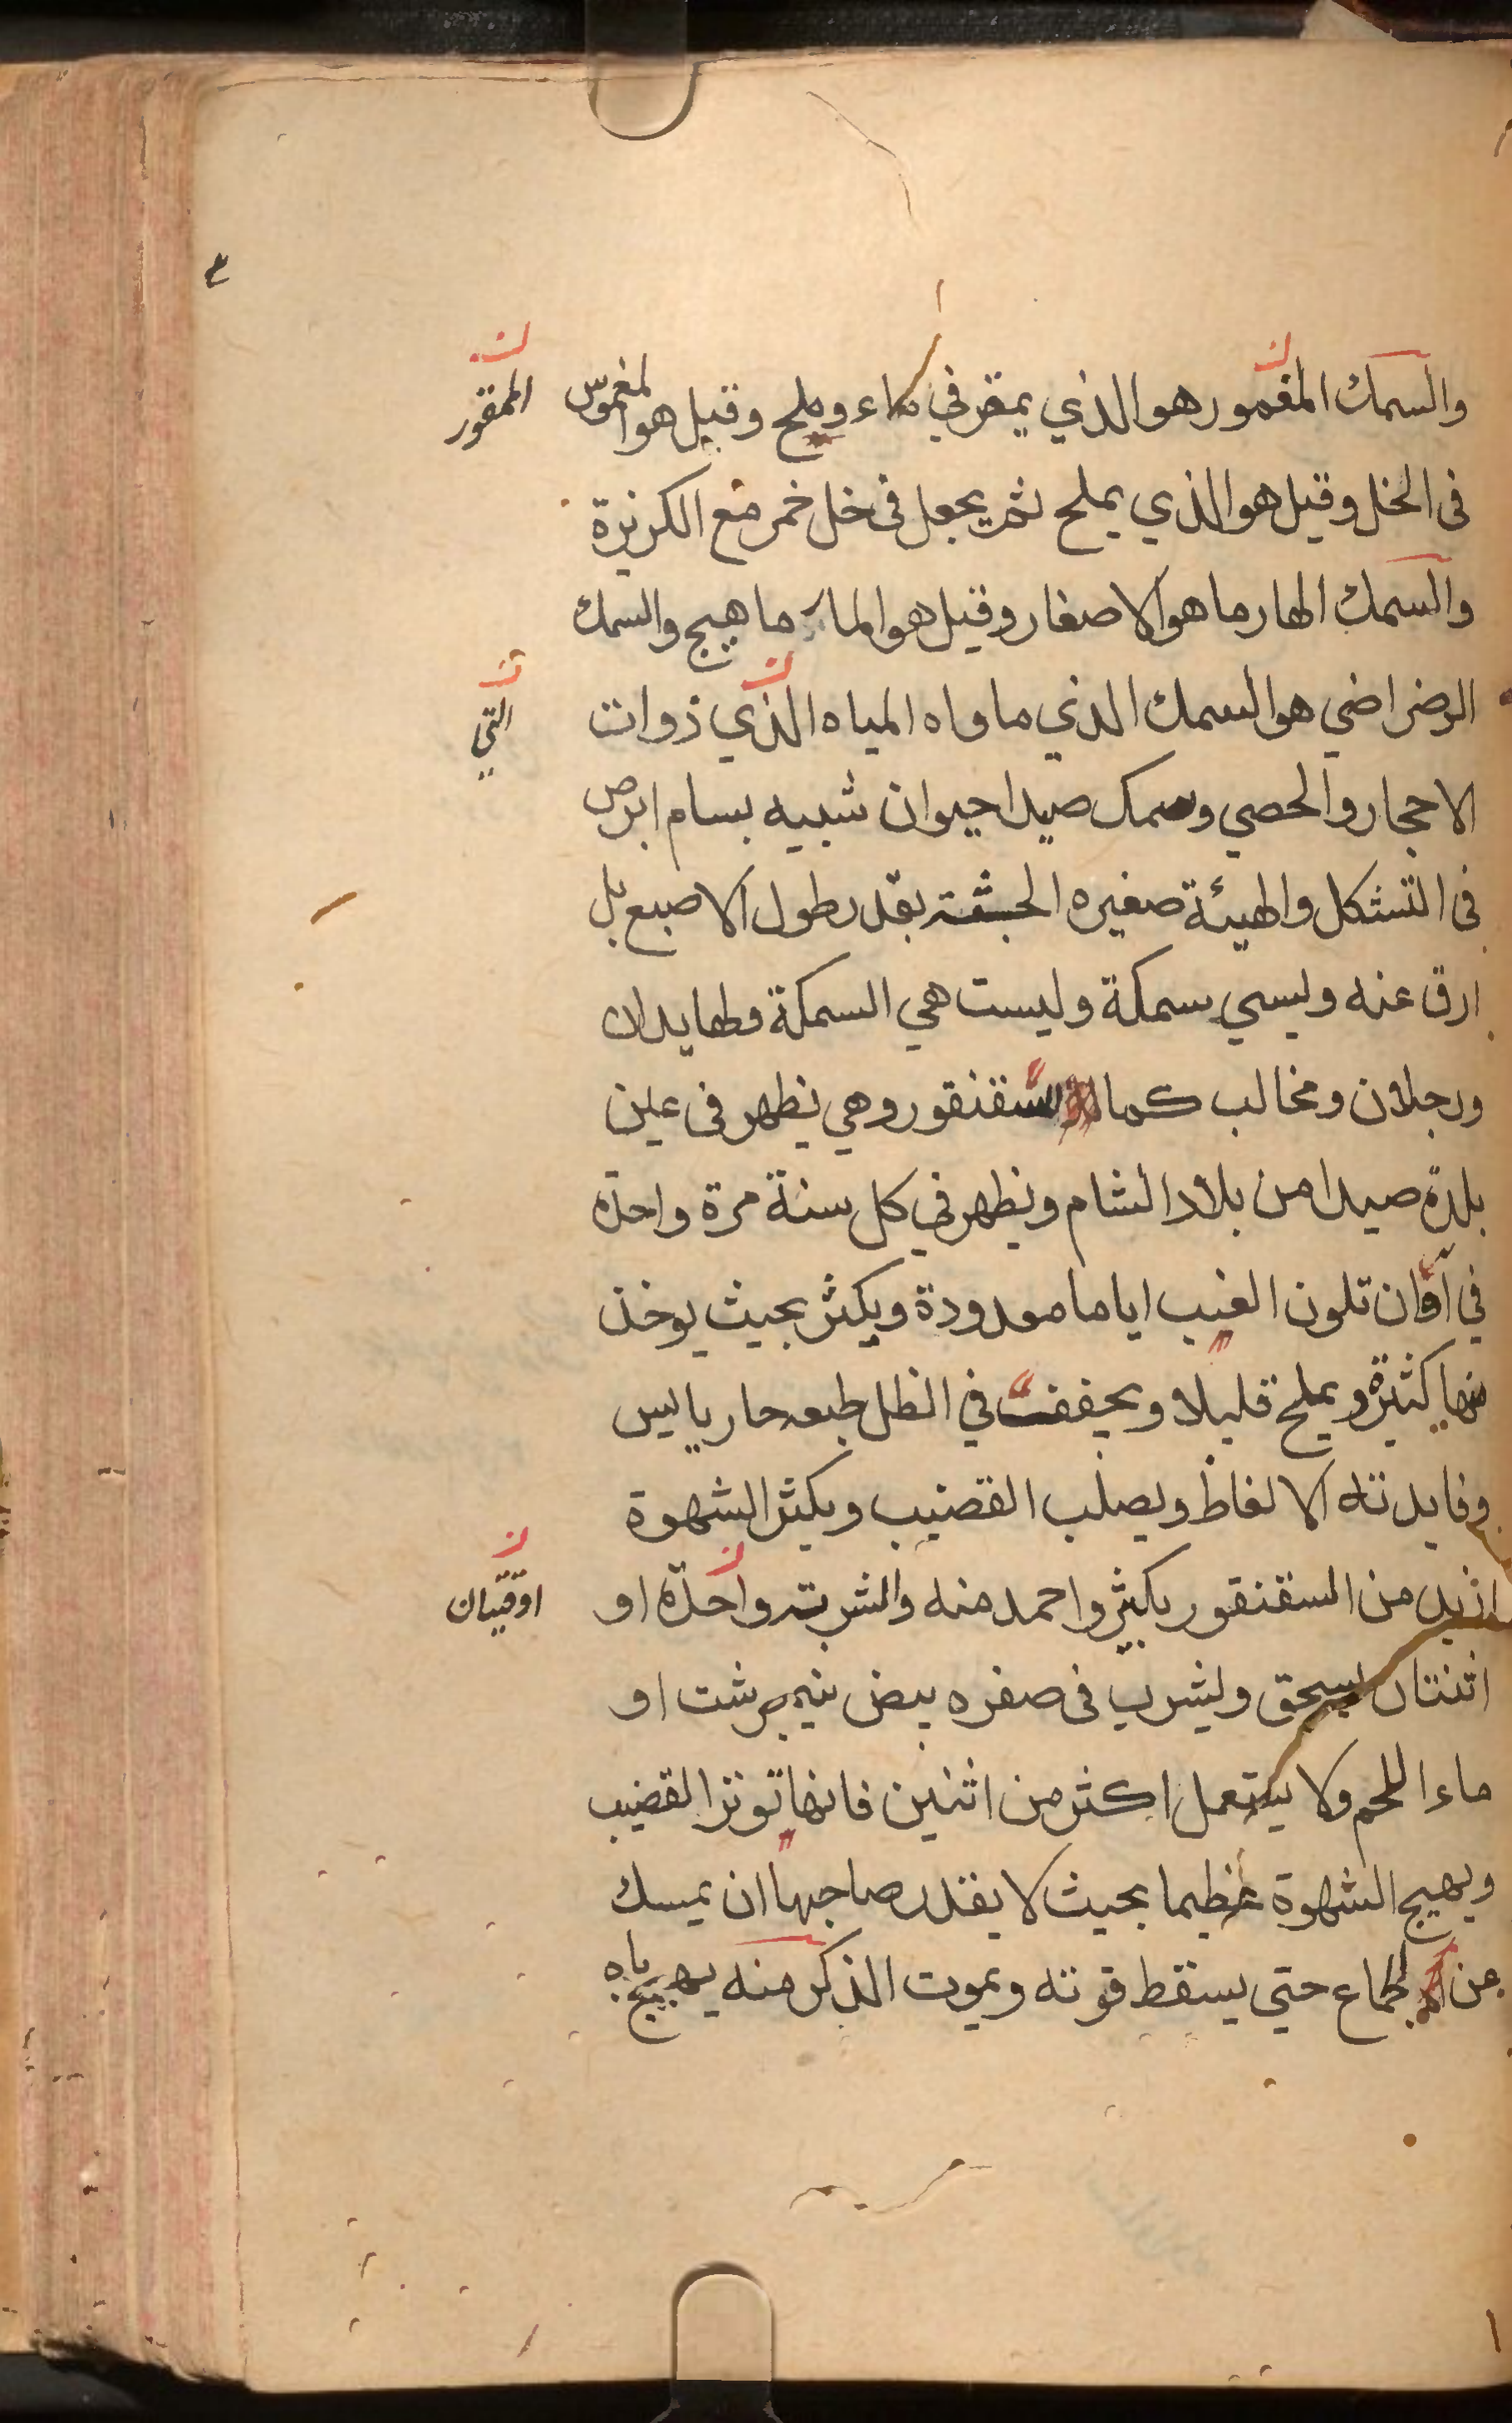 والسمك المقمور هو الذي يمقر في ماء وملح وقيل هو المغموس
الممقور
في الخل وقيل هو الذي يملح ثم يجعل في خل خمر مع الكزبرة
والسمك الهارما هو الاصغار وقيل هو الما ما هيج والسمك
الرضراضي هو السمك الذي ماواه المياه الذي ذوات
التي
الاحجار والحصي وسمك صيدا حيوان شبيه بسام ابرص
في التشكل والهيئة صغيره الجثة بقدر طول الاصبع بل
ارق عنه وليسي سمكة وليست هي السمكة ولها يدان
ورجلان ومخالب كما السقنقور وهي يظهر في عين
بلدة صيدا من بلاد الشام ويظهر في كل سنة مرة واحدة
في آوان تلون العنب اياما معدودة ويكثر بحيث يوخذ
منها كثيرة ويملح قليلا ويجففت في الظل طبعه حار يابس
وفايدته الانعاظ ويصلب القضيب ويكثر الشهوة
ازيد من السقنقور بكثير واحمد منه والشربة واحدة او
اوقيتان
اثنتان يسحق ويشرب في صفره بيض نيمبرشت او
ماء اللحم ولا يستعمل اكثر من اثنين فانها توتر القضيب
ويهيج الشهوة عظيما بحيث لا يقدر صاحبها ان يمسك
عن الجماع حتي يسقط قوته ويموت الذكر منه يهيج باه